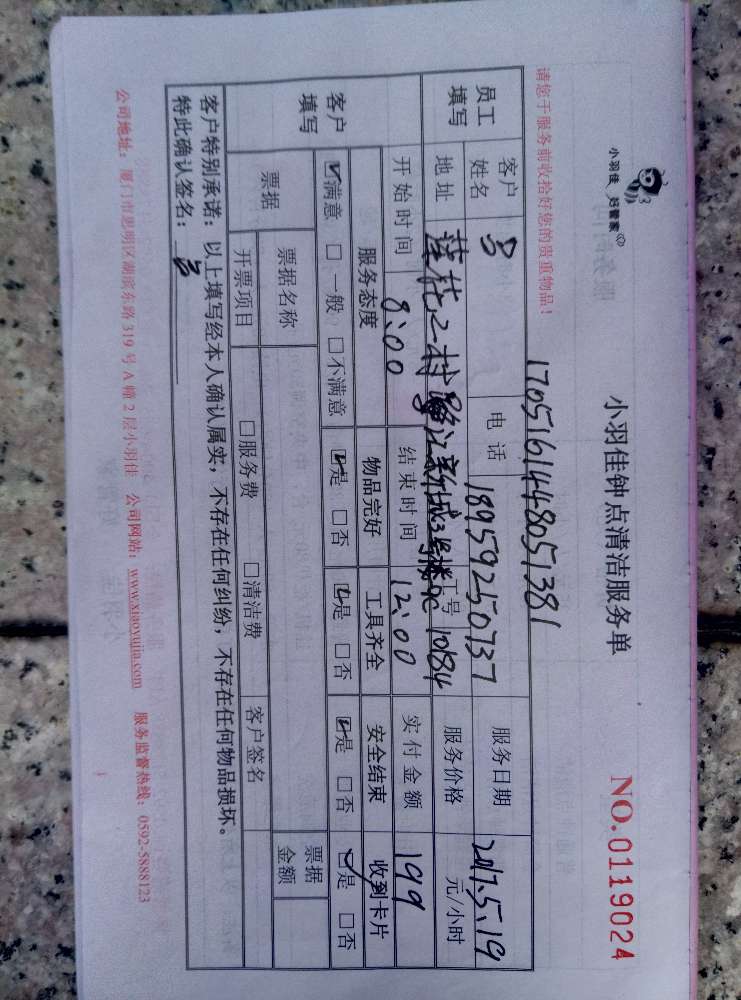 小羽佳 好管家
小羽佳钟点清洁服务单
NO.0119024
请您于服务前收拾好您的贵重物品！
1705161448051381
员工填写 客户姓名 吕 电话 18959250737 服务日期 2017.5.19
地址 莲花二村 江新城3号楼9C 工号 10184 服务价格 元/小时
客户填写 开始时间 8:00 结束时间 12:00 实付金额 199
服务态度 物品完好 工具齐全 安全结束 收到卡片
☑满意 □一般 □不满意 ☑是 □否 ☑是 □否 ☑是 □否 ☑是 □否
票据 票据名称 票据金额
开票项目 □服务费 □清洁费 客户签名
客户特别承诺：以上填写经本人确认属实，不存在任何纠纷，不存在任何物品损坏。
特此确认签名：吕
公司地址：厦门市思明区湖滨东路319号A幢2层小羽佳 公司网站：www.xiaoyujia.com 服务监督热线：0592-5888123